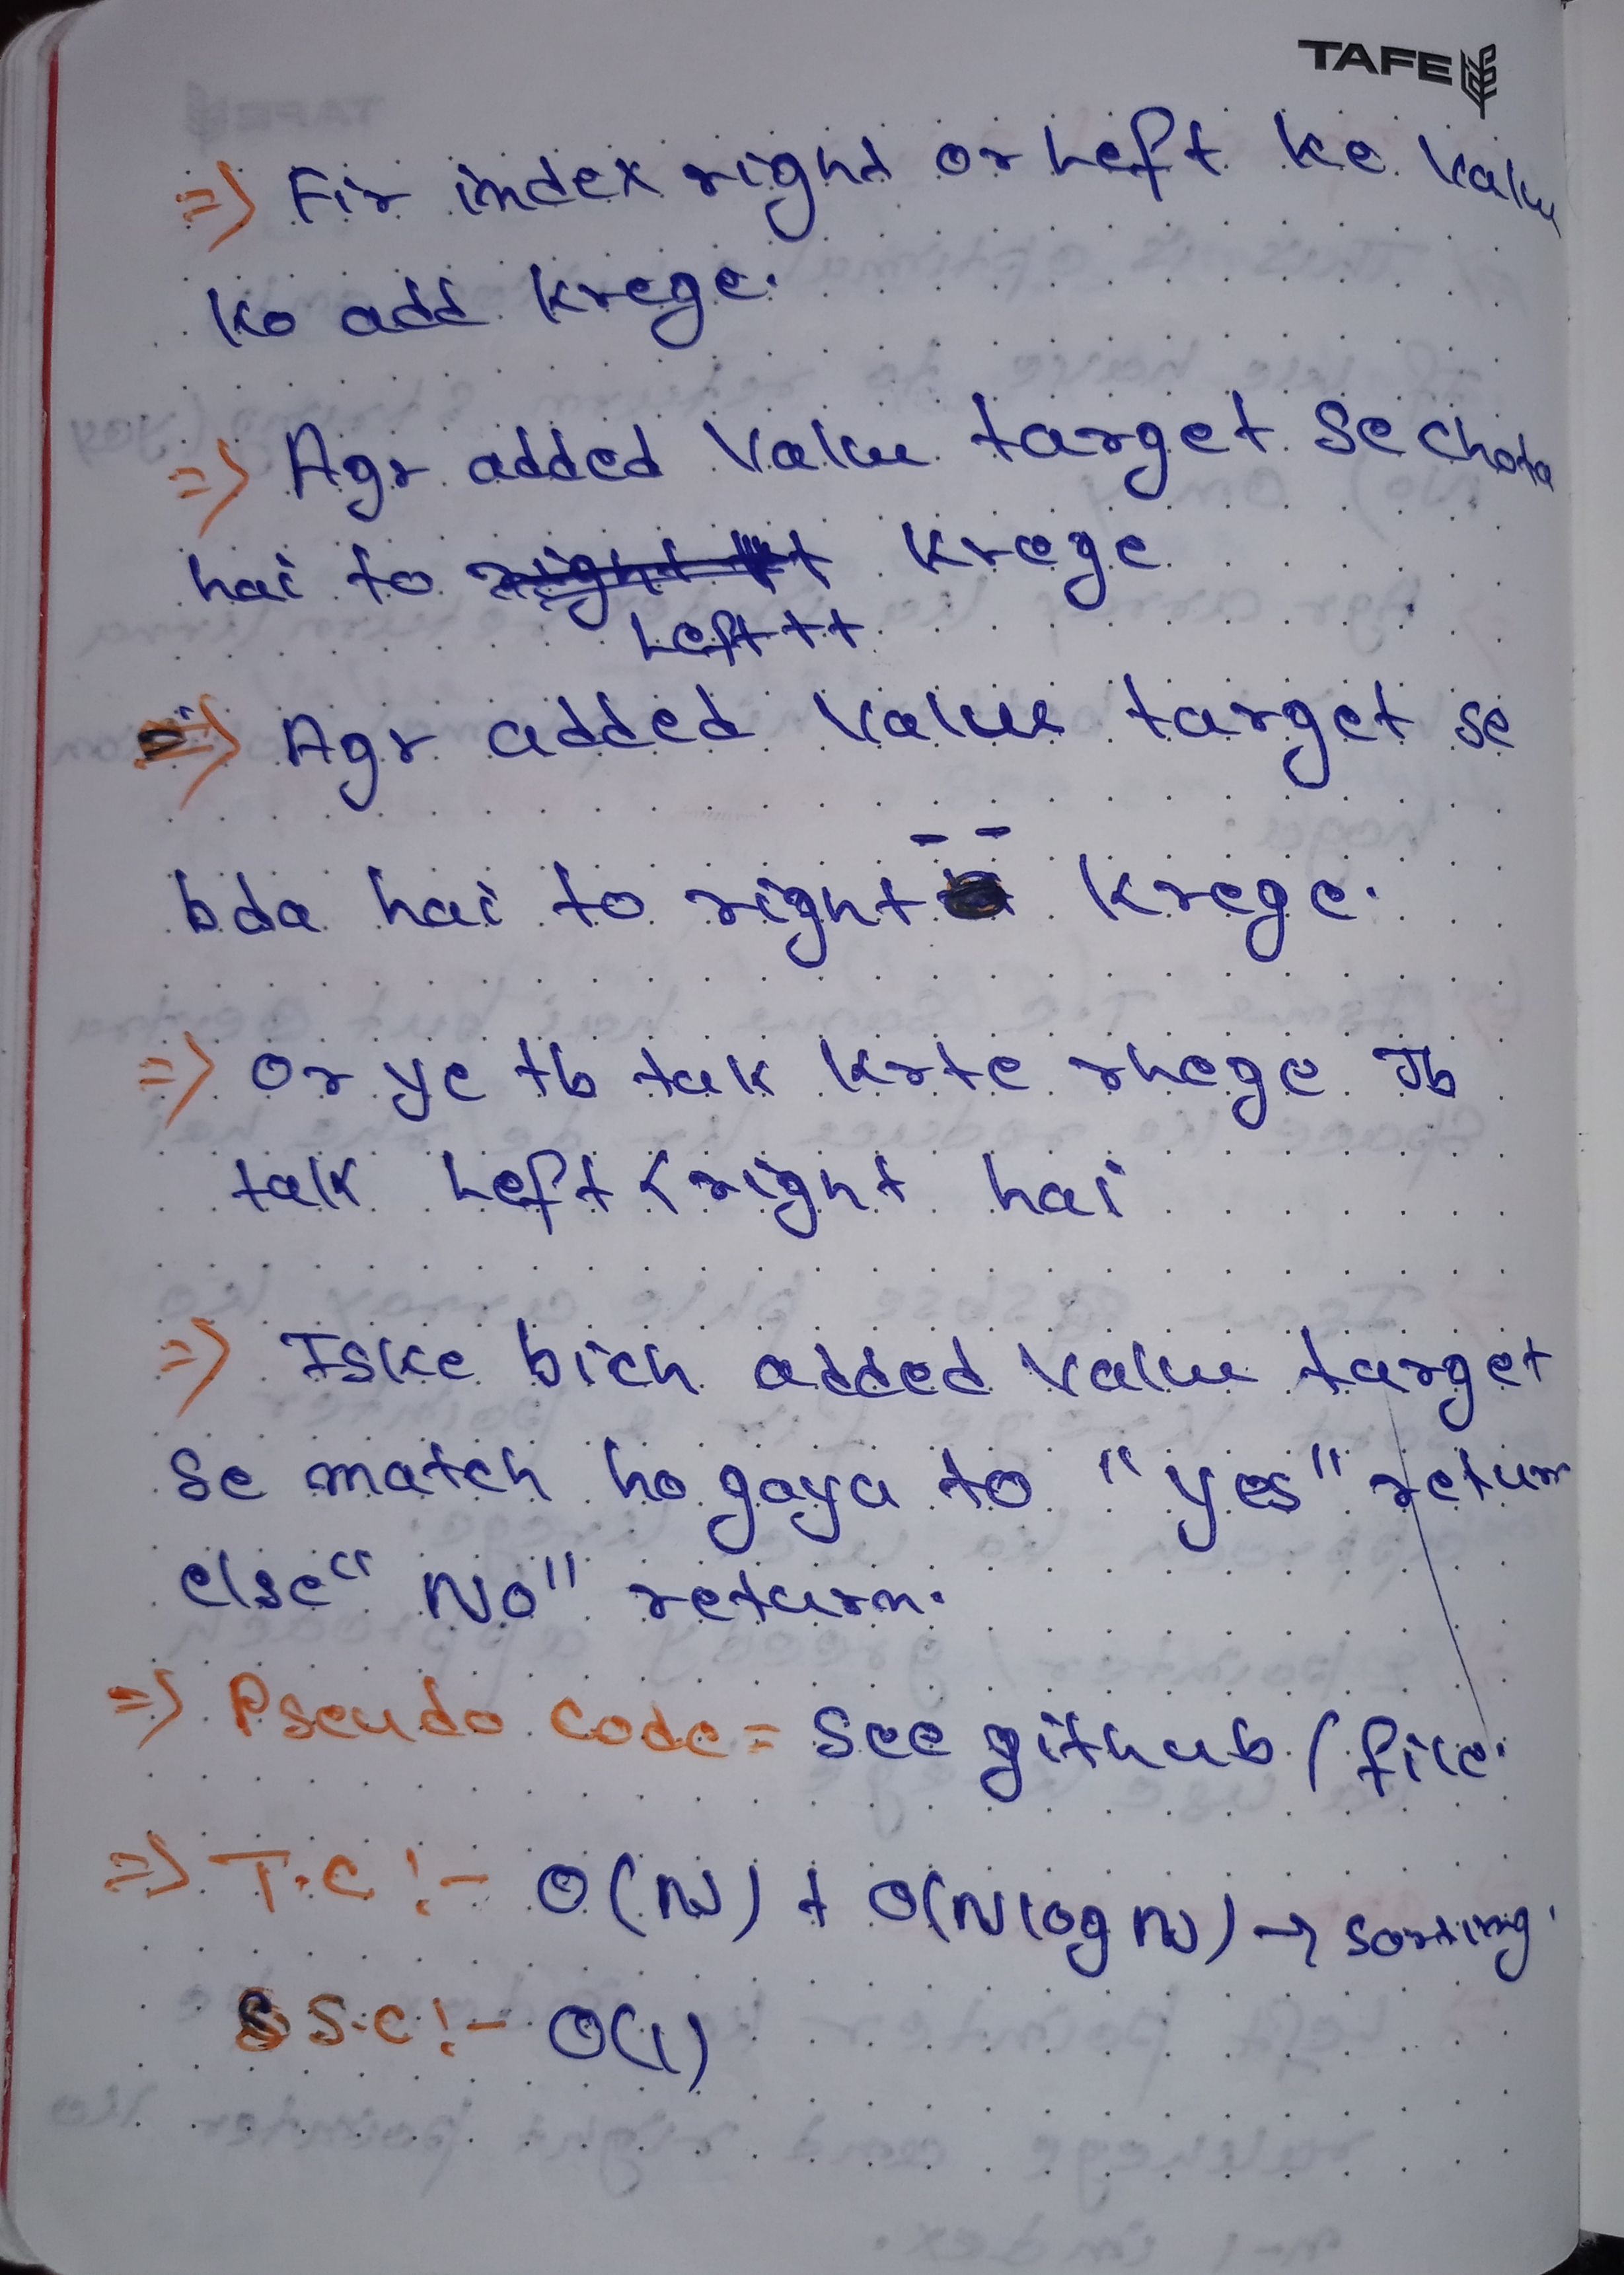 TAFE
=> Fir index right or Left ke Value
ko add krege.
=> Agr added Value target se chota
hai to krege
Left++
=> Agr added Value target se
bda hai to right -- krege.
=> Or ye tb tak krte rhege Jb
talk Left < right hai
=> Iske bich added Value target
se match ho gaya to "yes" return
else "No" return.
=> Pseudo code = See github / file.
=> T.C :- O(N) + O(N log N) → sorting
S.C :- O(1)